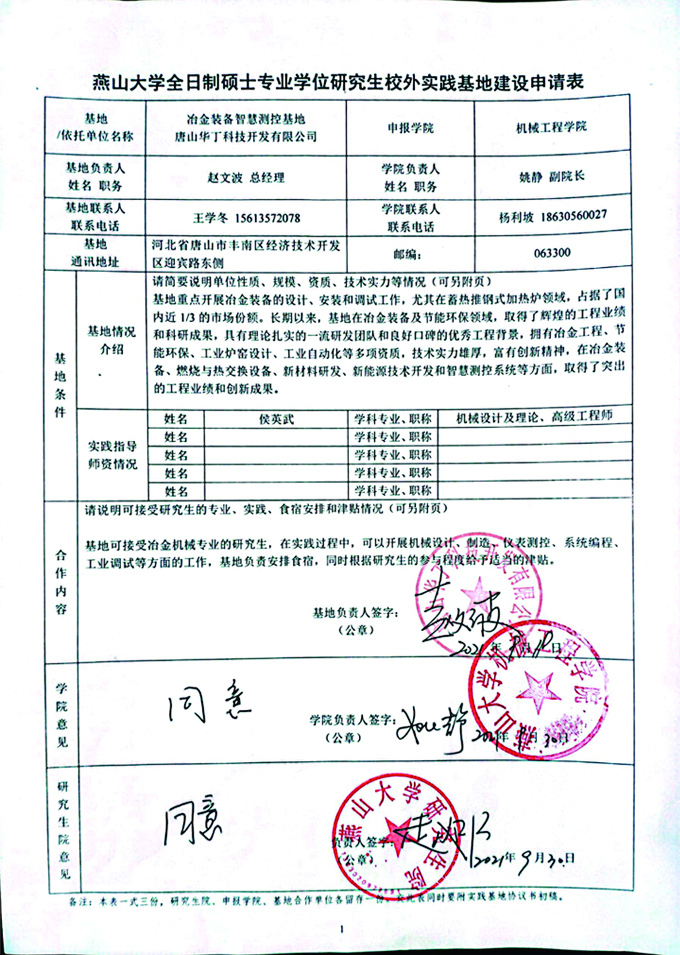 燕山大学全日制硕士专业学位研究生校外实践基地建设申请表
基地
/依托单位名称
冶金装备智慧测控基地
唐山华丁科技开发有限公司
申报学院
机械工程学院
基地负责人
姓名 职务
赵文波 总经理
学院负责人
姓名 职务
姚静 副院长
基地联系人
联系电话
王学冬 15613572078
学院联系人
联系电话
杨利坡 18630560027
基地
通讯地址
河北省唐山市丰南区经济技术开发
区迎宾路东侧
邮编：
063300
基地条件
基地情况
介绍
请简要说明单位性质、规模、资质、技术实力等情况（可另附页）
基地重点开展冶金装备的设计、安装和调试工作，尤其在蓄热推钢式加热炉领域，占据了国
内近 1/3 的市场份额。长期以来，基地在冶金装备及节能环保领域，取得了辉煌的工程业绩
和科研成果，具有理论扎实的一流研发团队和良好口碑的优秀工程背景，拥有冶金工程、节
能环保、工业炉窑设计、工业自动化等多项资质，技术实力雄厚，富有创新精神，在冶金装
备、燃烧与热交换设备、新材料研发、新能源技术开发和智慧测控系统等方面，取得了突出
的工程业绩和创新成果。
实践指导
师资情况
姓名
侯英武
学科专业、职称
机械设计及理论、高级工程师
姓名
学科专业、职称
姓名
学科专业、职称
姓名
学科专业、职称
姓名
学科专业、职称
合作内容
请说明可接受研究生的专业、实践、食宿安排和津贴情况（可另附页）
基地可接受冶金机械专业的研究生，在实践过程中，可以开展机械设计、制造、仪表测控、系统编程、
工业调试等方面的工作，基地负责安排食宿，同时根据研究生的参与程度给予适当的津贴。
基地负责人签字：
赵文波
（公章）
2021年
学院意见
同意
学院负责人签字：
（公章）
燕山大学机械工程学院
2021年9月30日
研究生院意见
同意
燕山大学研究生院
负责人签字：
（公章）
2021年9月30日
备注：本表一式三份，研究生院、申报学院、基地合作单位各留存一份，交此表同时要附实践基地协议书初稿。
1